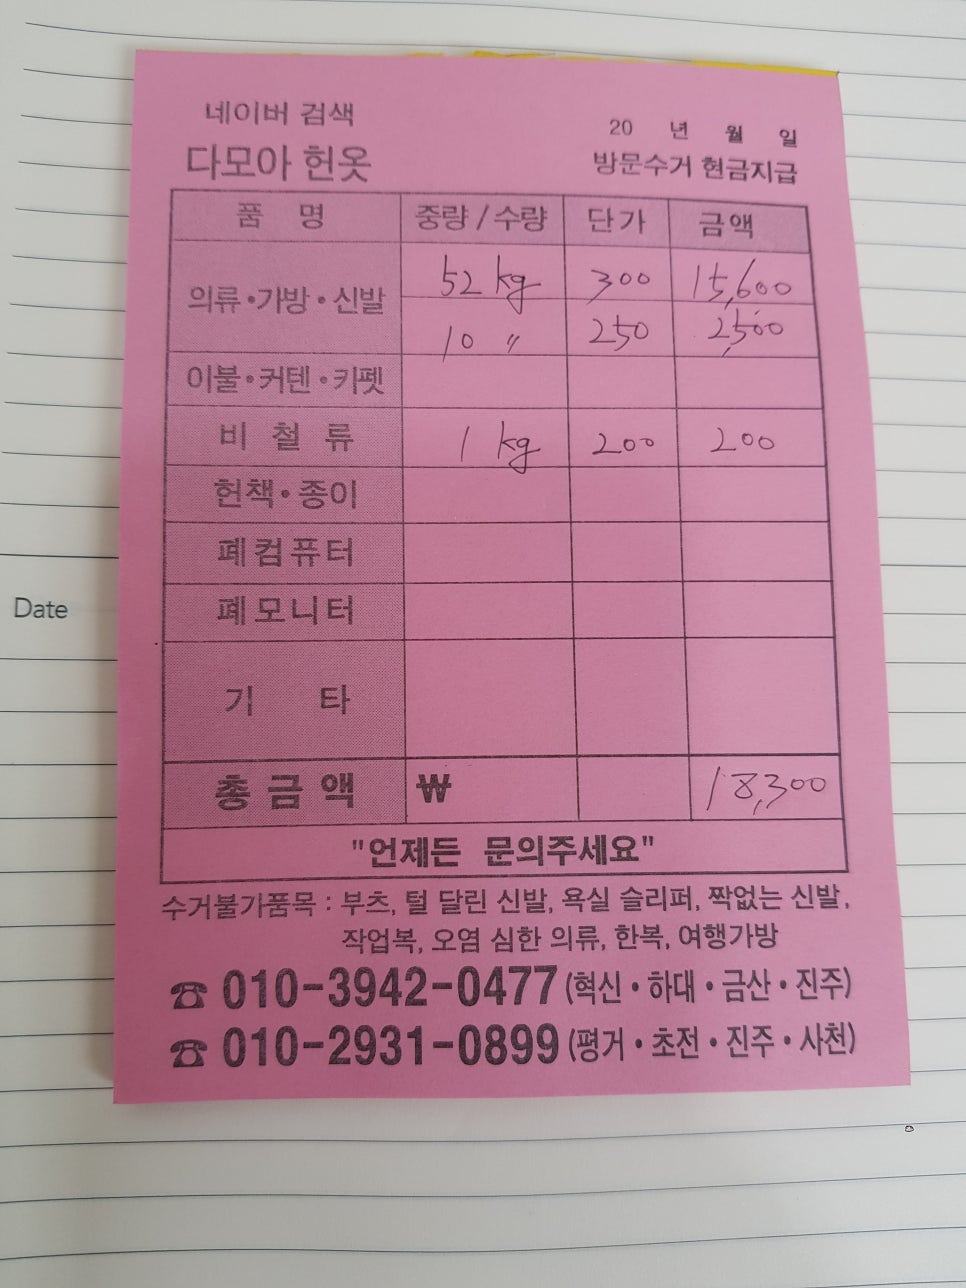 네이버 검색
20 년 월 일
다모아 헌옷
방문수거 현금지급
품 명 중량 / 수량 단가 금액
의류·가방·신발 52 kg 300 15,600
10 〃 250 2,500
이불·커텐·키펫
비 철 류 1 kg 200 200
헌책·종이
폐컴퓨터
폐모니터
기 타
총금액 ₩ 18,300
"언제든 문의주세요"
수거불가품목 : 부츠, 털 달린 신발, 욕실 슬리퍼, 짝없는 신발,
작업복, 오염 심한 의류, 한복, 여행가방
☎ 010-3942-0477 (혁신·하대·금산·진주)
☎ 010-2931-0899 (평거·초전·진주·사천)
Date